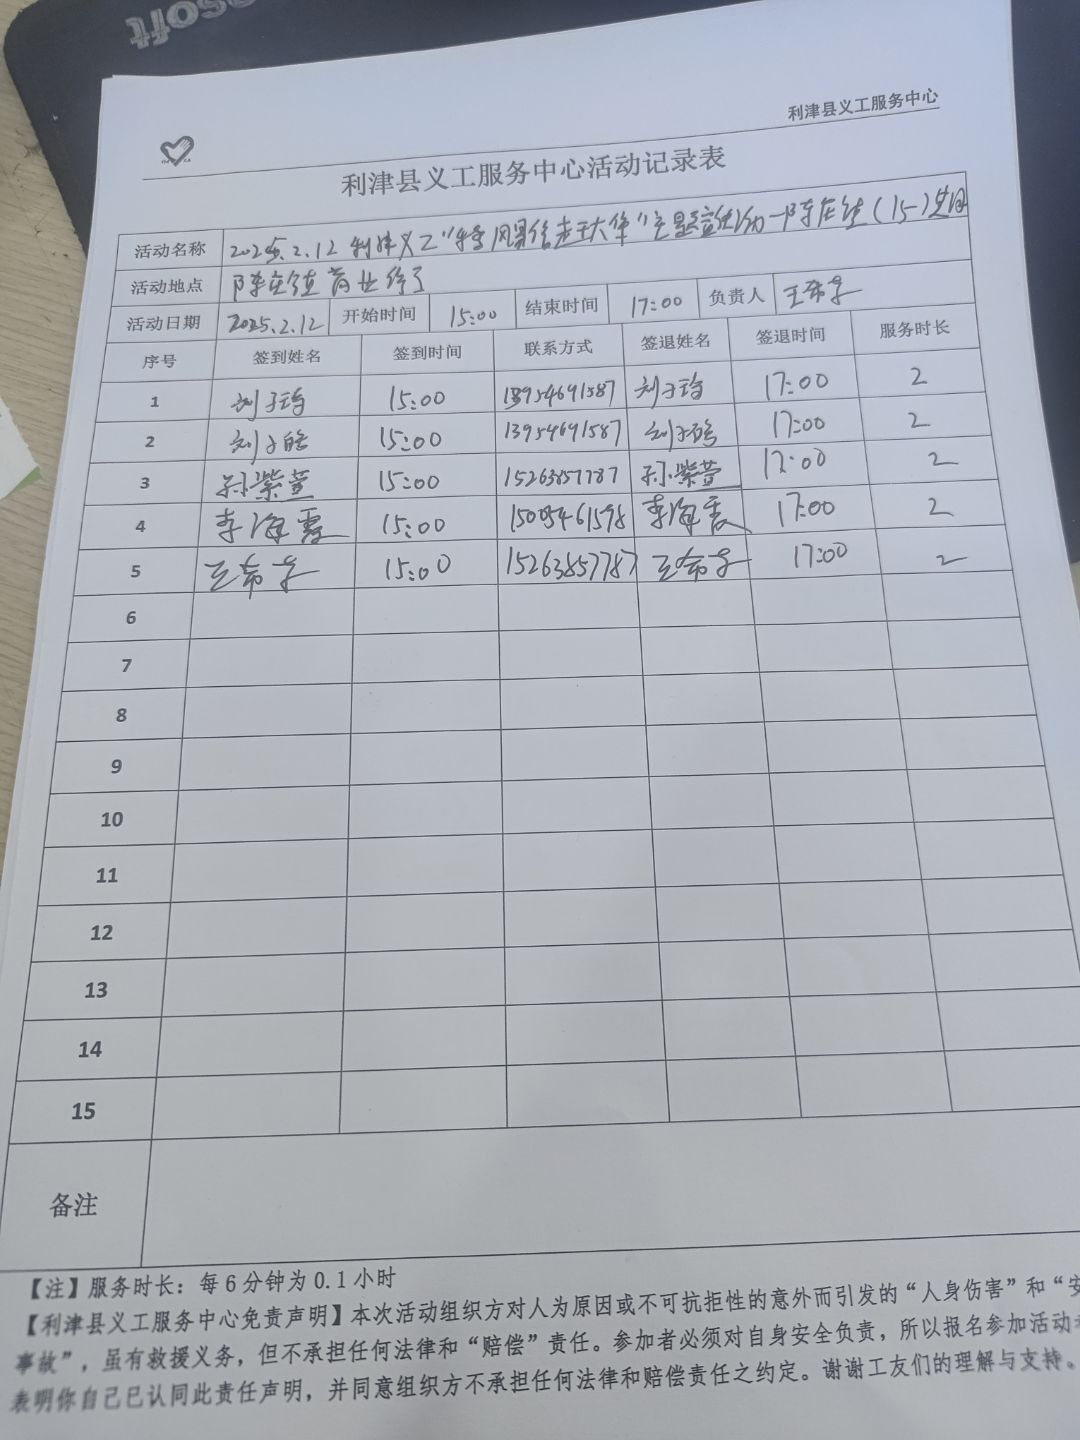 soft
利津县义工服务中心
利津县义工服务中心活动记录表
活动名称 2025.2.12 利津义工"特 风景 走 大 "主题 活动一陈庄镇(15)
活动地点 陈庄镇商业
活动日期 2025.2.12 开始时间 15:00 结束时间 17:00 负责人 王希
序号 签到姓名 签到时间 联系方式 签退姓名 签退时间 服务时长
1 刘子 15:00 13954691587 刘子 17:00 2
2 刘子皓 15:00 13954691587 刘子皓 17:00 2
3 孙紫萱 15:00 15263857787 孙紫萱 17:00 2
4 李海霞 15:00 15005461598 李海霞 17:00 2
5 王希 15:00 15263857787 王希 17:00 2
6
7
8
9
10
11
12
13
14
15
备注
【注】服务时长：每6分钟为0.1小时
【利津县义工服务中心免责声明】本次活动组织方对人为原因或不可抗拒性的意外而引发的“人身伤害”和“安
事故”，虽有救援义务，但不承担任何法律和“赔偿”责任。参加者必须对自身安全负责，所以报名参加活动者
表明你自己已认同此责任声明，并同意组织方不承担任何法律和赔偿责任之约定。谢谢工友们的理解与支持。